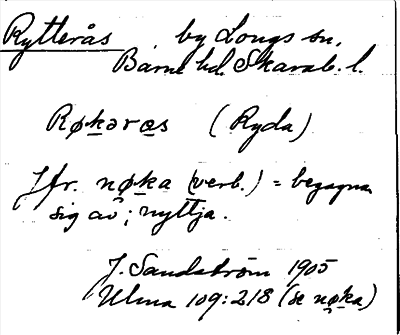 Rytterås by Longs sn,
Barne hd. Skarab. l.
Røkəras (Ryda)
Jfr. nøka (verb.) = begagna
sig av; nyttja.
J. Sandström 1905
Ulma 109:218 (se nøka)